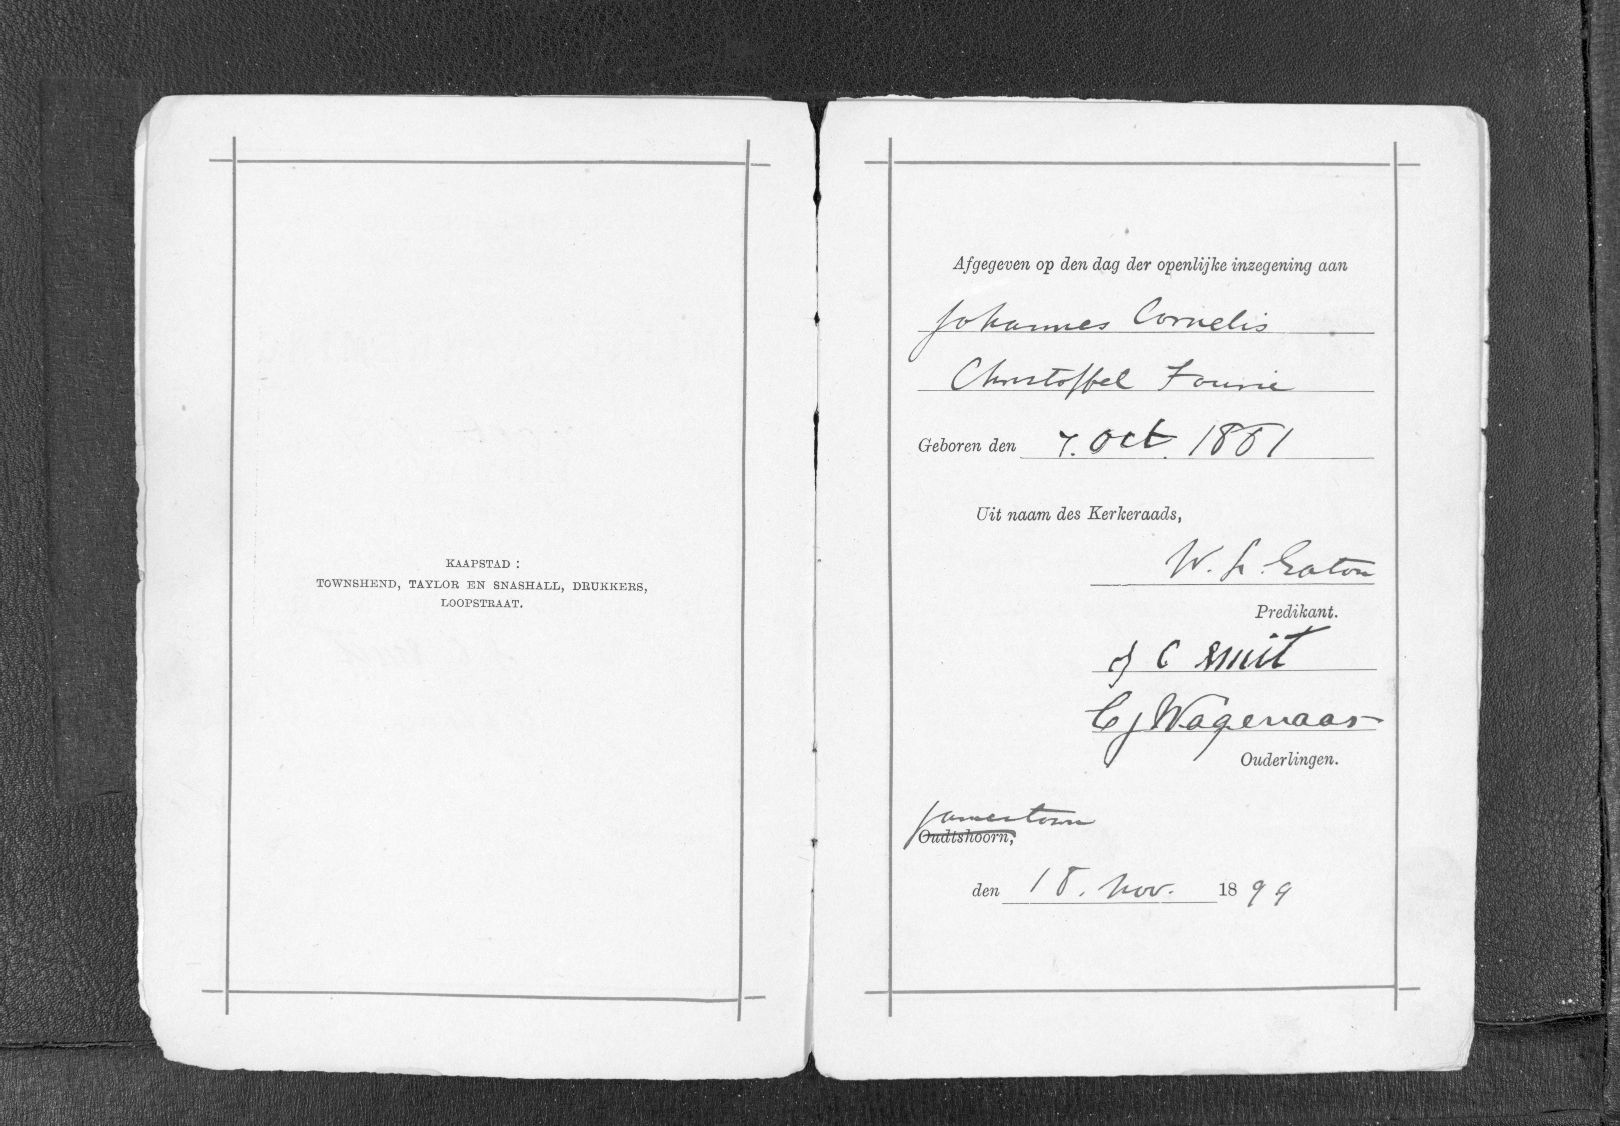 KAAPSTAD :
TOWNSHEND, TAYLOR EN SNASHALL, DRUKKERS,
LOOPSTRAAT.
Afgegeven op den dag der openlijke inzegening aan
Johannes Cornelis
Christoffel Fourie
Geboren den 7. Oct. 1881
Uit naam des Kerkeraads,
W. L. Eaton
Predikant.
J C Smit
C J Wagenaar
Ouderlingen.
Jamestown
Oudtshoorn,
den 18. Nov. 1899